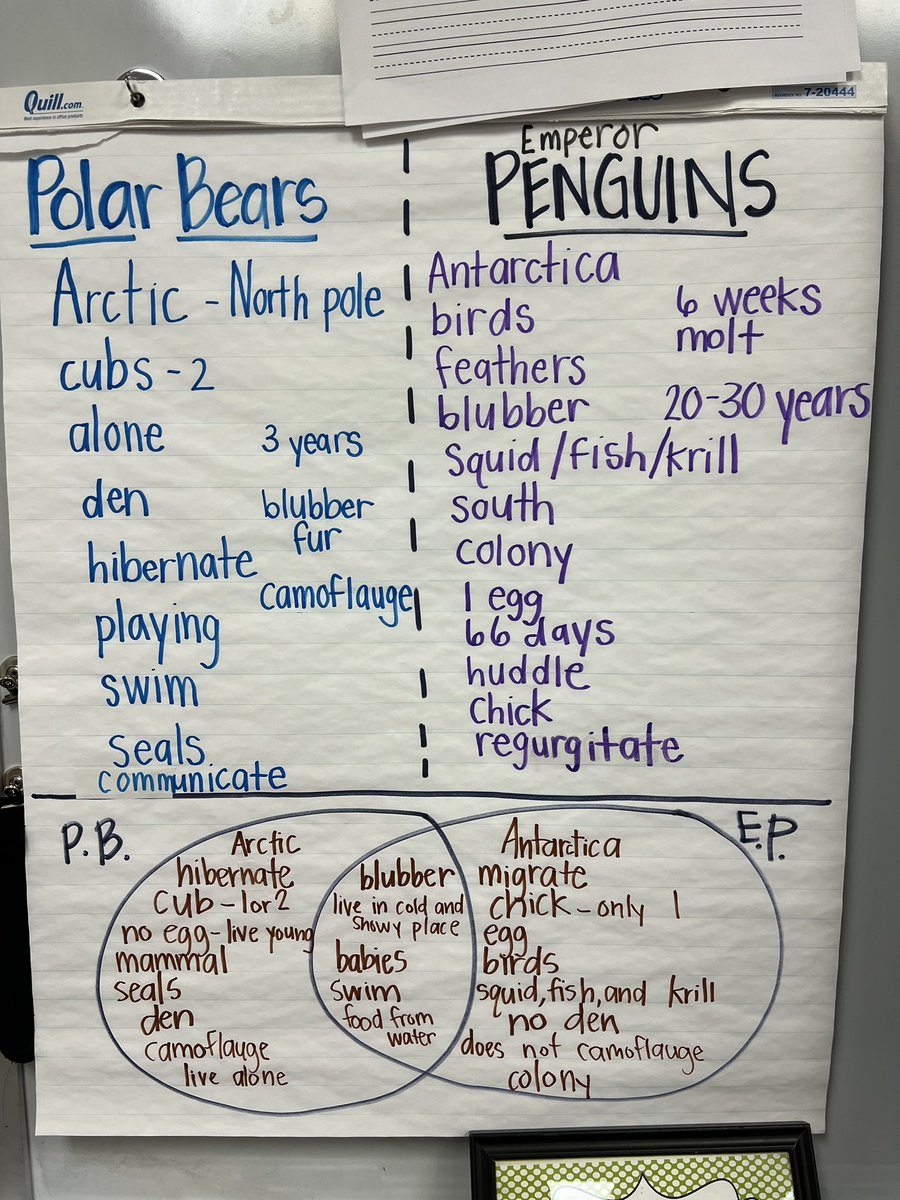 Quill.com
Best experience in office products
7-20444
Polar Bears
Arctic - North pole
cubs - 2
alone
3 years
den
blubber
fur
hibernate
camoflauge
playing
swim
seals
communicate
Emperor
PENGUINS
Antarctica
birds
6 weeks
molt
feathers
blubber
20-30 years
squid/fish/krill
south
colony
1 egg
66 days
huddle
chick
regurgitate
P.B.
Arctic
hibernate
cub - 1 or 2
no egg - live young
mammal
seals
den
camoflauge
live alone
blubber
live in cold and
snowy place
babies
swim
food from
water
E.P.
Antarctica
migrate
chick - only 1
egg
birds
squid, fish, and krill
no den
does not camoflauge
colony